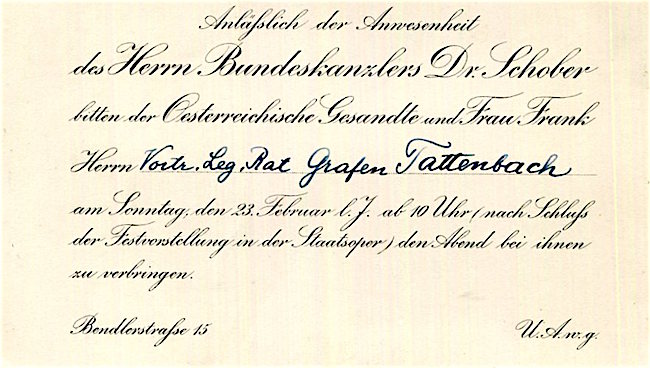 Anläßlich der Anwesenheit
des Herrn Bundeskanzlers Dr. Schober
bitten der Oesterreichische Gesandte und Frau Frank
Herrn Vortr. Leg. Rat Grafen Tattenbach
am Sonntag, den 23. Februar l. J. ab 10 Uhr (nach Schluß
der Festvorstellung in der Staatsoper) den Abend bei ihnen
zu verbringen.
Bendlerstraße 15 U. A. w. g.